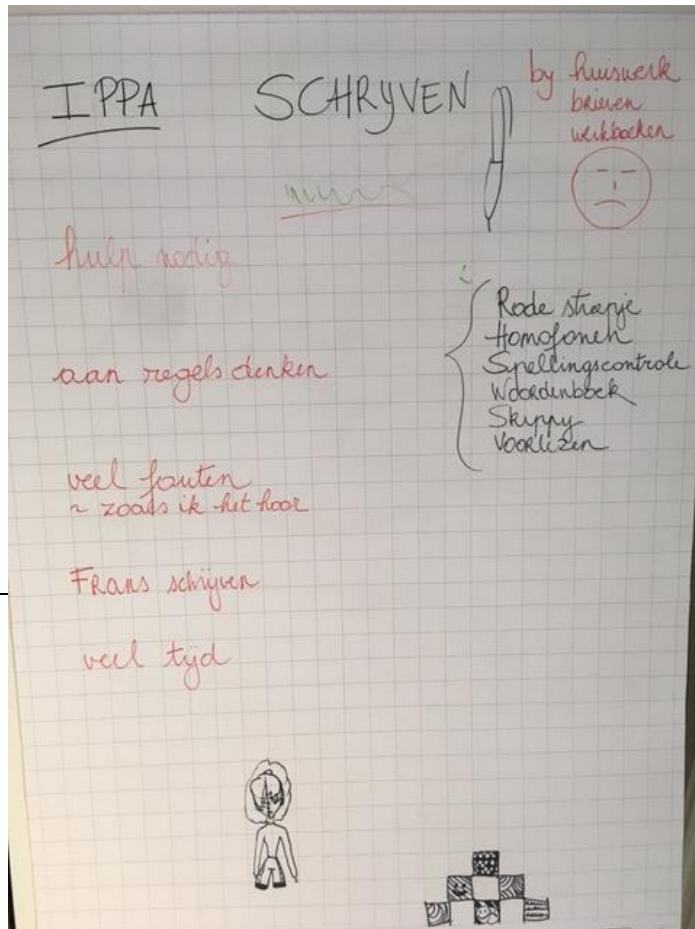 IPPA SCHRIJVEN
by huiswerk
brieven
werkboeken
hulp nodig
aan regels denken
veel fouten
~ zoals ik het hoor
Frans schrijven
veel tijd
Rode streepje
Homofonen
Spellingscontrole
Woordenboek
Skippy
Voorlezen